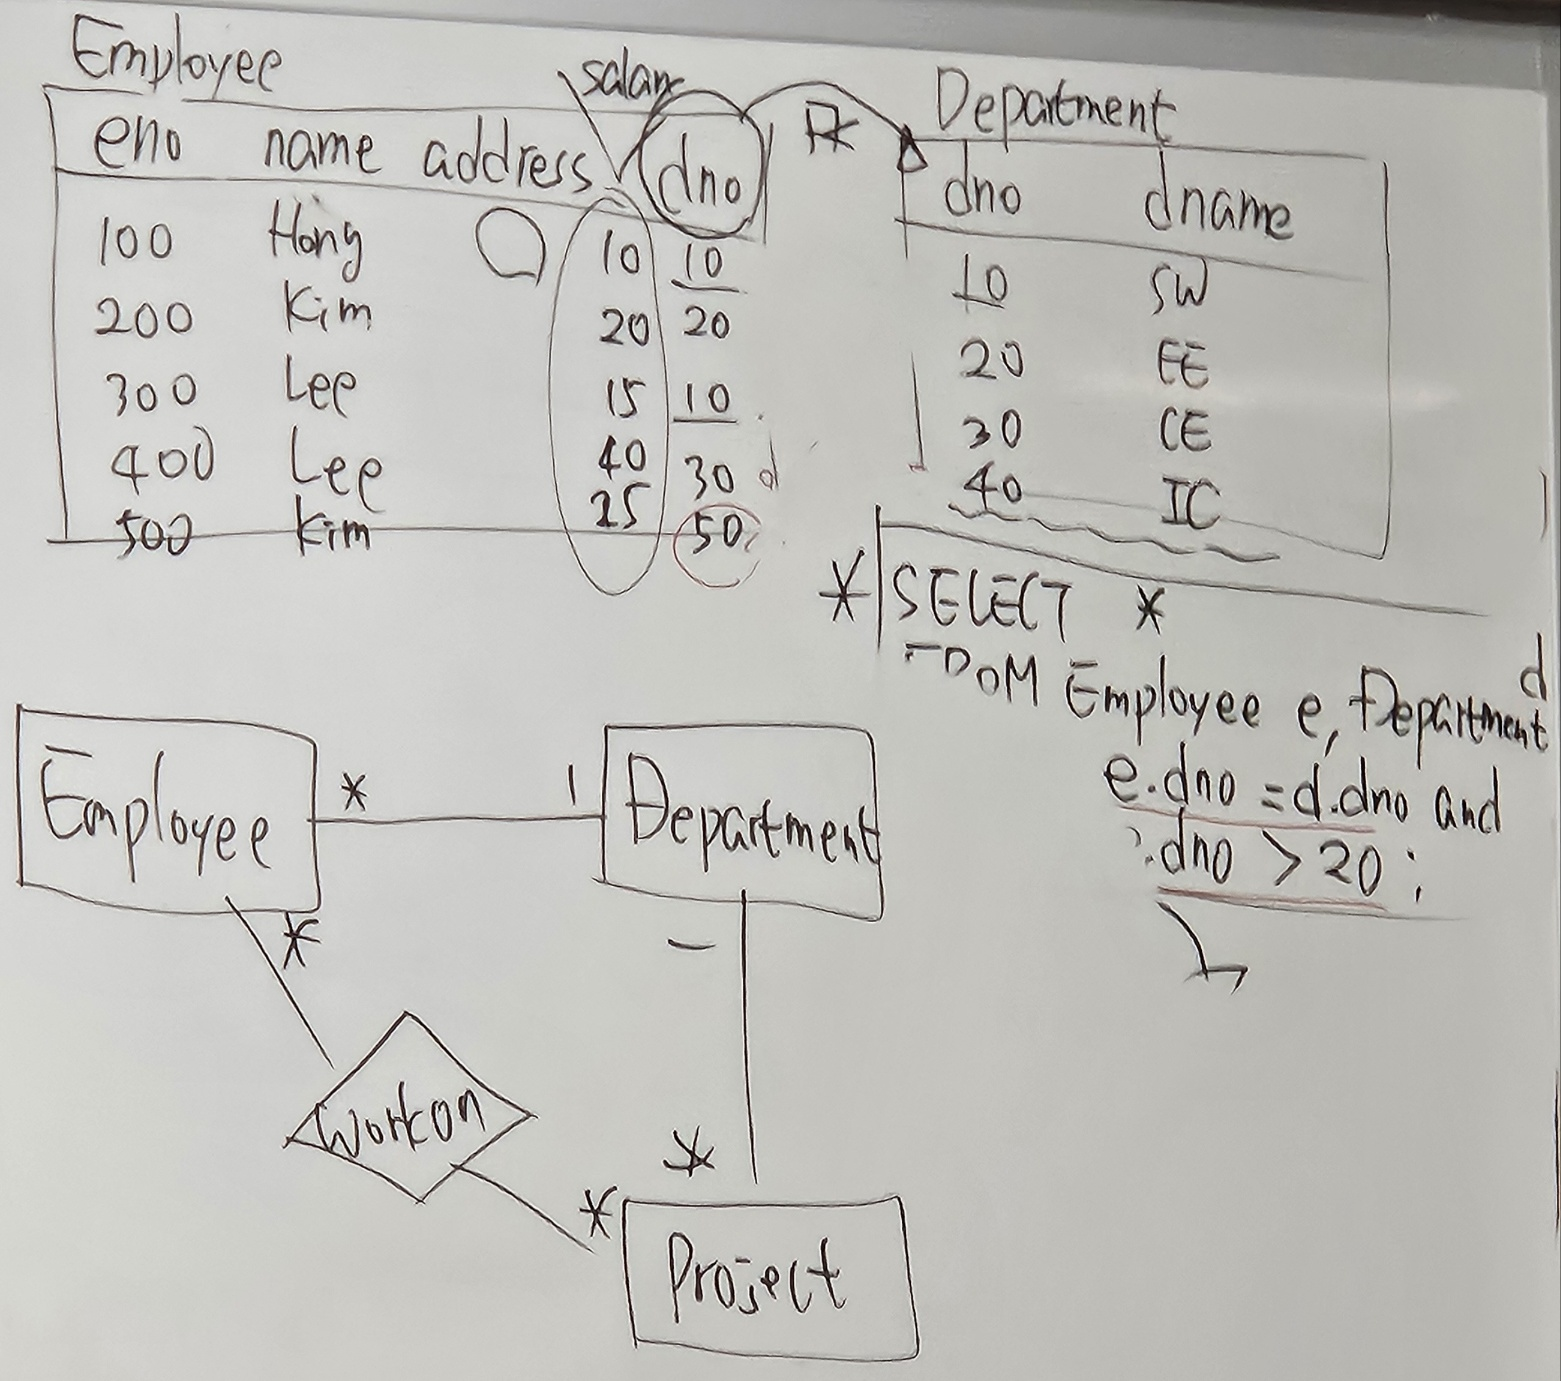 Employee
salary
eno name address dno
100 Hong 10 10
200 Kim 20 20
300 Lee 15 10
400 Lee 40 30 d
500 Kim 25 50
FK
Department
dno dname
10 SW
20 EE
30 CE
40 IC
* SELECT *
FROM Employee e, Department d
e.dno = d.dno and
.dno > 20 ;
Employee * 1 Department
* 1
Workon
* *
Project